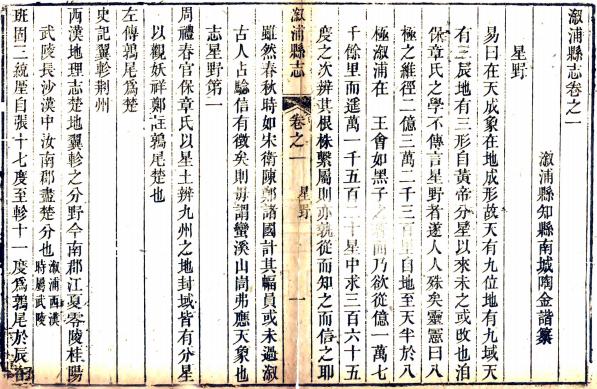 溆浦縣志卷之一
溆浦縣知縣南城陶金諧纂
星野
易曰在天成象在地成形故天有九位地有九域天
有三辰地有三形自黃帝分星以來未之或改也洎
保章氏之學不傳言星野者遂人人殊矣靈憲曰八
極之維徑二億三萬二千三百里自地至天半於八
極溆浦在 王會如黑子之 面而乃欲從億一萬七
千餘里而遥萬一千五百二十星中求三百六十五
度之次辨其根株繫屬則亦孰從而知之而信之耶
溆浦縣志 卷之一 星野 一
雖然春秋時如宋衛陳鄭諸國計其幅員或未過溆
古人占驗信有徵矣則毋謂蠻溪山峝弗應天象也
志星野第一
周禮春官保章氏以星土辨九州之地封域皆有分星
以觀妖祥鄭註鶉尾楚也
左傳鶉尾爲楚
史記翼軫荆州
西漢地理志楚地翼軫之分野今南郡江夏零陵桂陽
武陵長沙漢中汝南郡盡楚分也
溆浦西漢
時屬武陵
班固三統厯自張十七度至軫十一度爲鶉尾於辰在